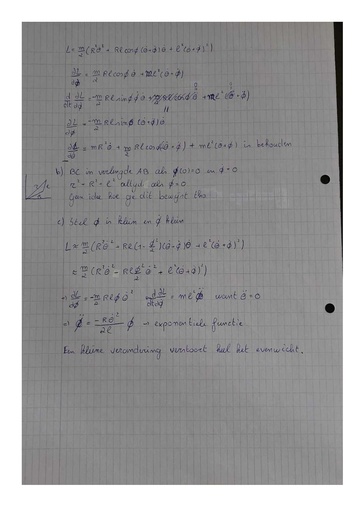 L = m/2 (R²α̇² + Rl cosϕ (α̇+ϕ̇) α̇ + l²(α̇+ϕ̇)²)
∂L/∂ϕ̇ = m/2 Rl cosϕ α̇ + ml²(α̇+ϕ̇)
d/dt ∂L/∂ϕ̇ = -m/2 Rl sinϕ ϕ̇ α̇ + m/2 Rl cosϕ α̈ + ml²(α̈+ϕ̈)
∂L/∂ϕ = -m/2 Rl sinϕ (α̇+ϕ̇) α̇
= mR²α̇ + m/2 Rl cosϕ(α̇+ϕ̇) + ml²(α̇+ϕ̇) is behouden
b) BC in verlengde AB als ϕ(0)=0 en ϕ̇=0
r² = R² + l² altijd als ϕ=0
Geen idee hoe ge dit bewijst tho
c) Stel ϕ is klein en ϕ̇ klein
L ≈ m/2 (R²α̇² + Rl(1-ϕ²/2)(α̇+ϕ̇)α̇ + l²(α̇+ϕ̇)²)
≈ m/2 (R²α̇² - Rl ϕ²/2 α̇² + l²(α̇+ϕ̇)²)
⇒ ∂L/∂ϕ = -m/2 Rl ϕ α̇² d/dt ∂L/∂ϕ̇ = ml²ϕ̈ want α̈=0
⇒ ϕ̈ = -Rα̇²/2l ϕ ⇒ exponentiele functie
Een kleine verandering verstoort heel het evenwicht.